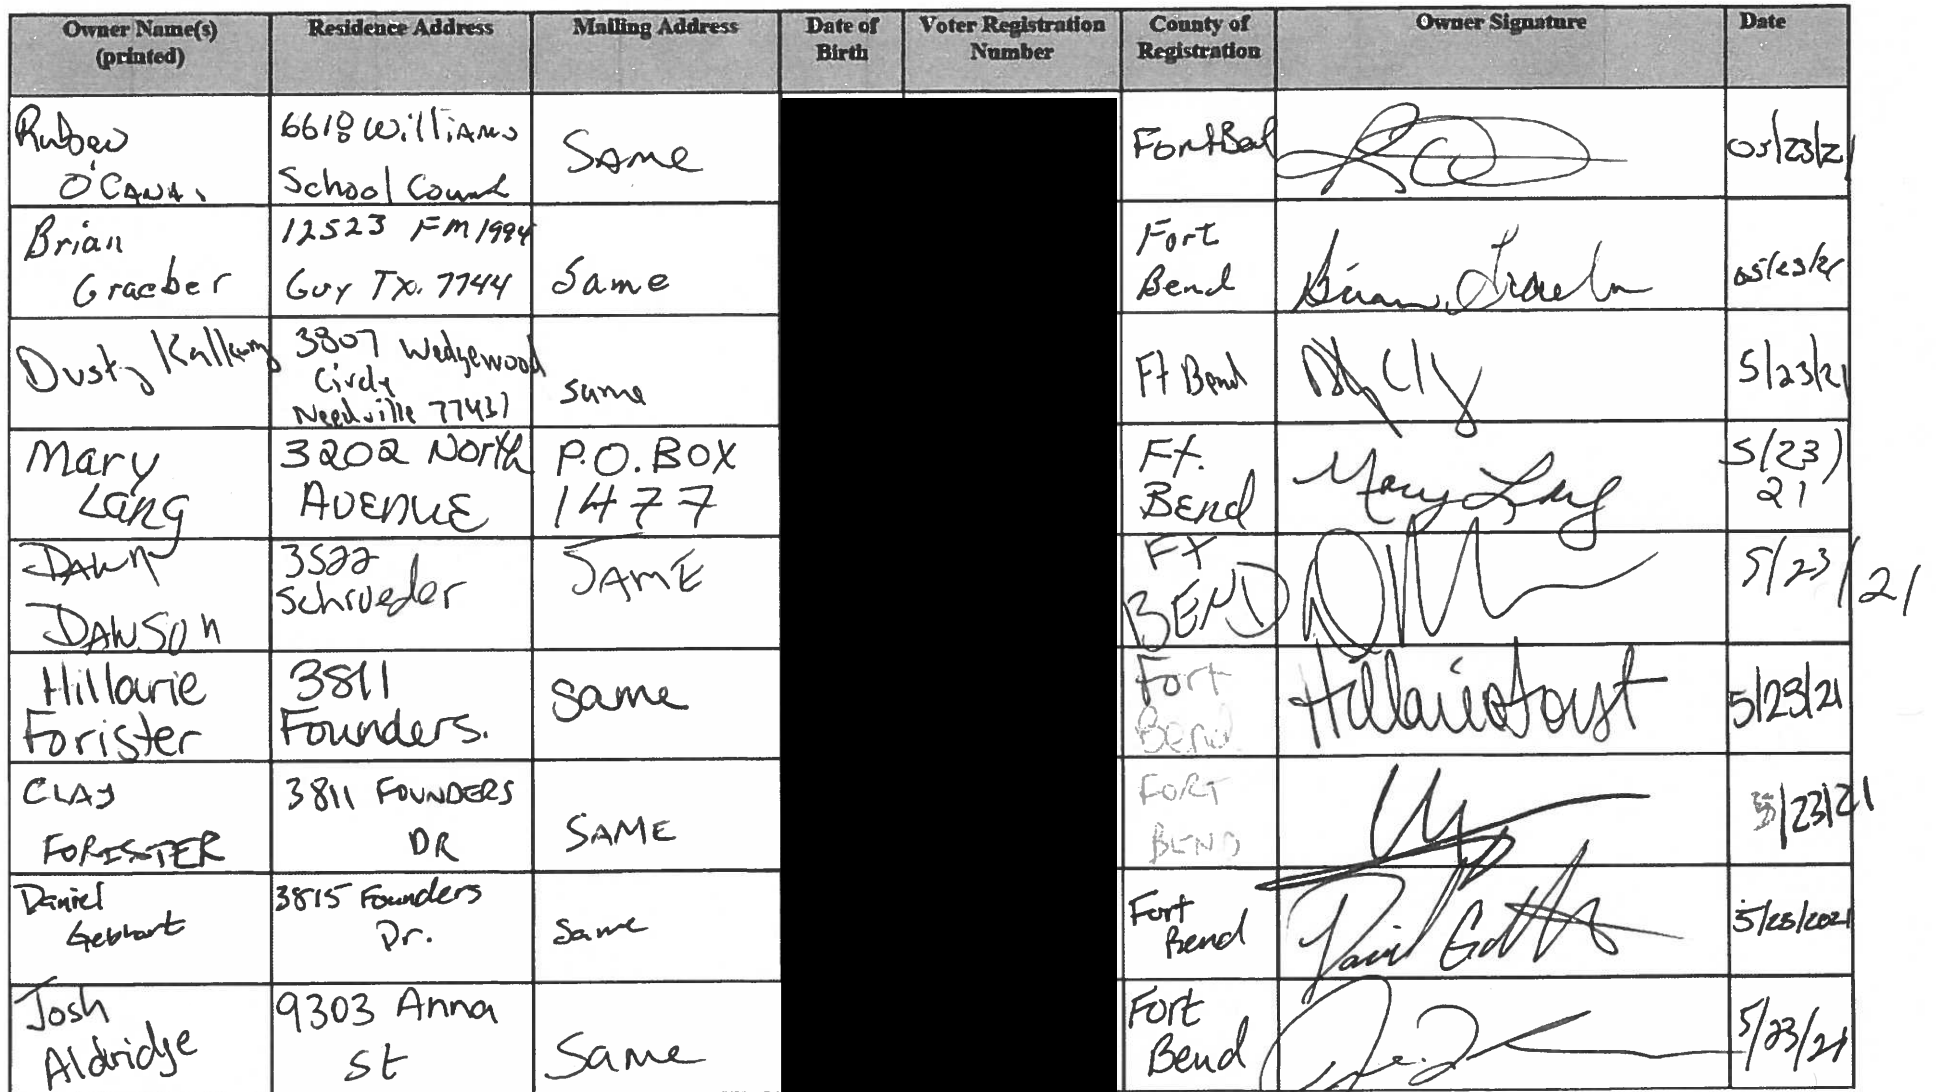 Owner Name(s)
(printed)
Residence Address
Mailing Address
Date of
Birth
Voter Registration
Number
County of
Registration
Owner Signature
Date
Ruben
O'CANA
6618 Williams
School Court
SAme
Fort Bend
05/23/21
Brian
Graeber
12523 FM 1994
Guy Tx. 7744
Same
Fort
Bend
05/23/21
Dusty
3807 Wedgewood
Circle
Needville 77437
same
Ft Bend
5/23/21
Mary
Lang
3202 North
AVENUE
P.O. BOX
1477
Ft.
Bend
Mary Lang
5/23/
21
DAWN
DAWSON
3522
Schroeder
SAME
Ft
BEND
5/23/21
Hillarie
Forister
3811
Founders.
same
Fort
Bend
5/23/21
CLAY
FORISTER
3811 FOUNDERS
DR
SAME
FORT
BEND
5/23/21
Daniel
Gebhart
3815 Founders
Dr.
same
Fort
Bend
5/23/2021
Josh
Aldridge
9303 Anna
St
Same
Fort
Bend
5/23/21